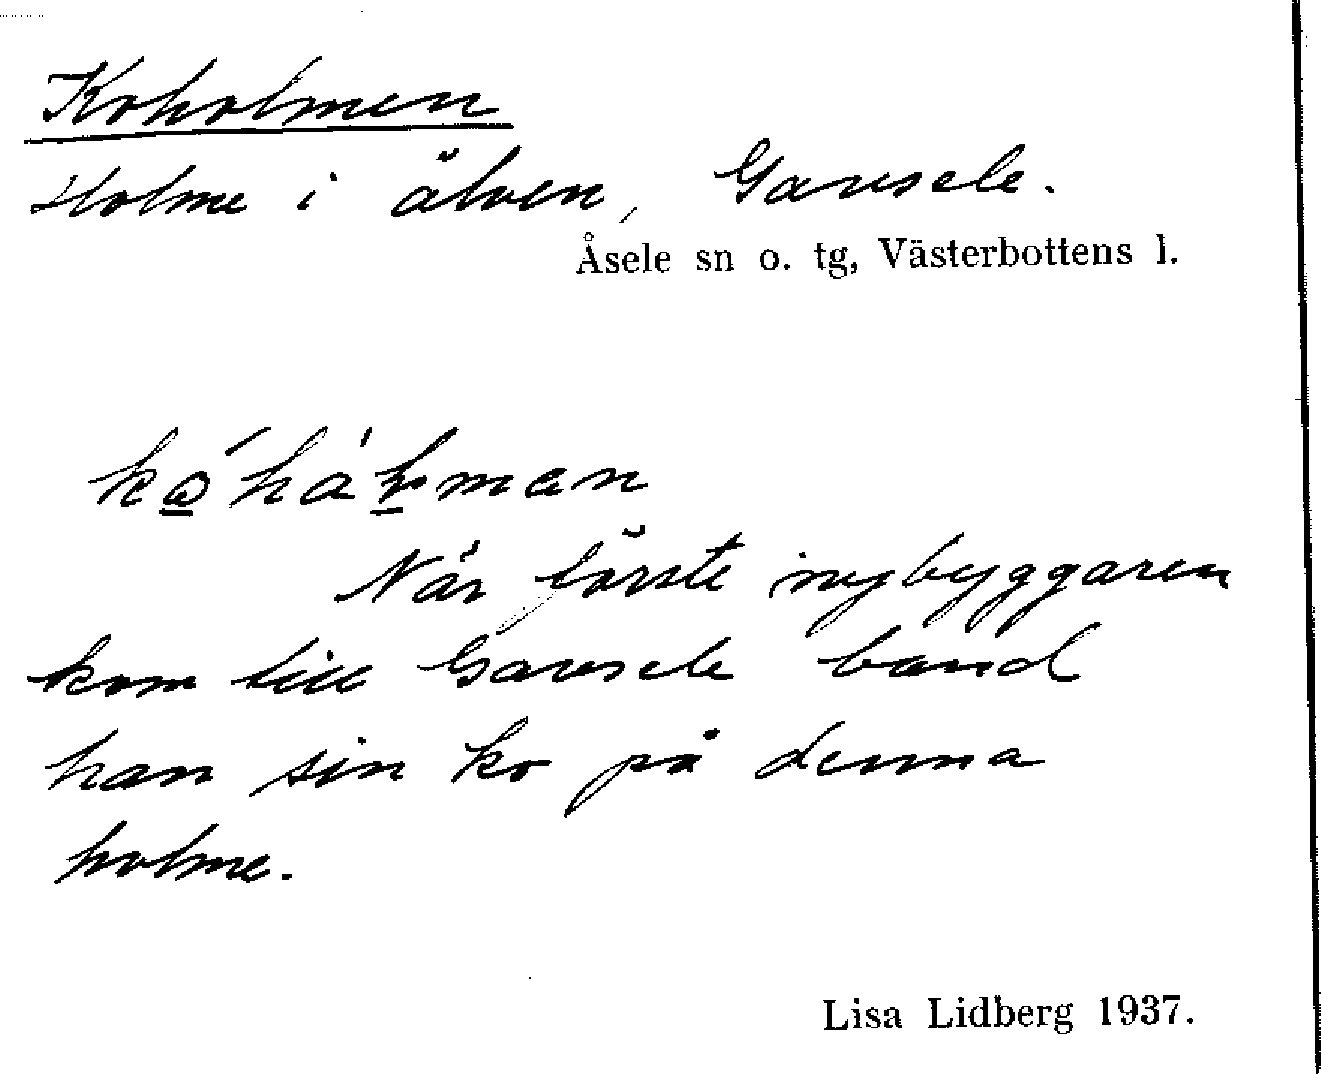 Koholmen
Holme i älven, Gavsele.
Åsele sn o. tg, Västerbottens l.
När förste nybyggaren
kom till Gavsele band
han sin ko på denna
holme.
Lisa Lidberg 1937.